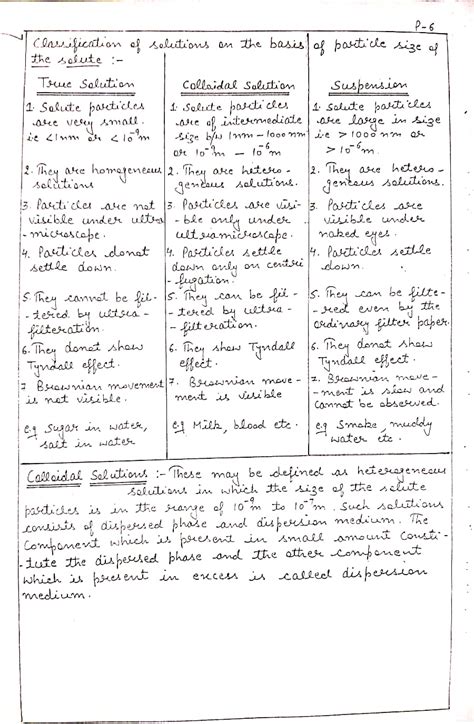 P-6
Classification of solutions on the basis of particle size of
the solute :-
True Solution
1. Solute particles
are very small.
i.e <1nm or <10⁻⁹m
2. They are homogeneous
solutions
3. Particles are not
visible under ultra
-microscope.
4. Particles donot
settle down.
5. They cannot be fil-
-tered by ultra-
filteration.
6. They donot show
Tyndall effect.
7. Brownian movement
is not visible.
e.g Sugar in water,
salt in water
Colloidal Solution
1. Solute particles
are of intermediate
size b/w 1nm - 1000 nm
or 10⁻⁹m - 10⁻⁶m
2. They are hetero-
geneous solutions.
3. Particles are visi-
-ble only under
ultramicroscope.
4. Particles settle
down only on centri
-fugation.
5. They can be fil-
-tered by ultra-
-filteration.
6. They show Tyndall
effect.
7. Brownian move-
ment is visible
e.g Milk, blood etc.
Suspension
1. Solute particles
are large in size
i.e > 1000 nm or
> 10⁻⁶m.
2. They are hetero-
geneous solutions.
3. Particles are
visible under
naked eyes.
4. Particles settle
down.
5. They can be filte-
-red even by the
ordinary filter paper.
6. They donot show
Tyndall effect.
7. Brownian move-
-ment is slow and
cannot be observed.
e.g Smoke, muddy
water etc.
Colloidal Solutions :- These may be defined as heterogeneous
solutions in which the size of the solute
particles is in the range of 10⁻⁹m to 10⁻⁷m. Such solutions
consists of dispersed phase and dispersion medium. The
Component which is present in small amount consti-
-tute the dispersed phase and the other component
which is present in excess is called dispersion
medium.